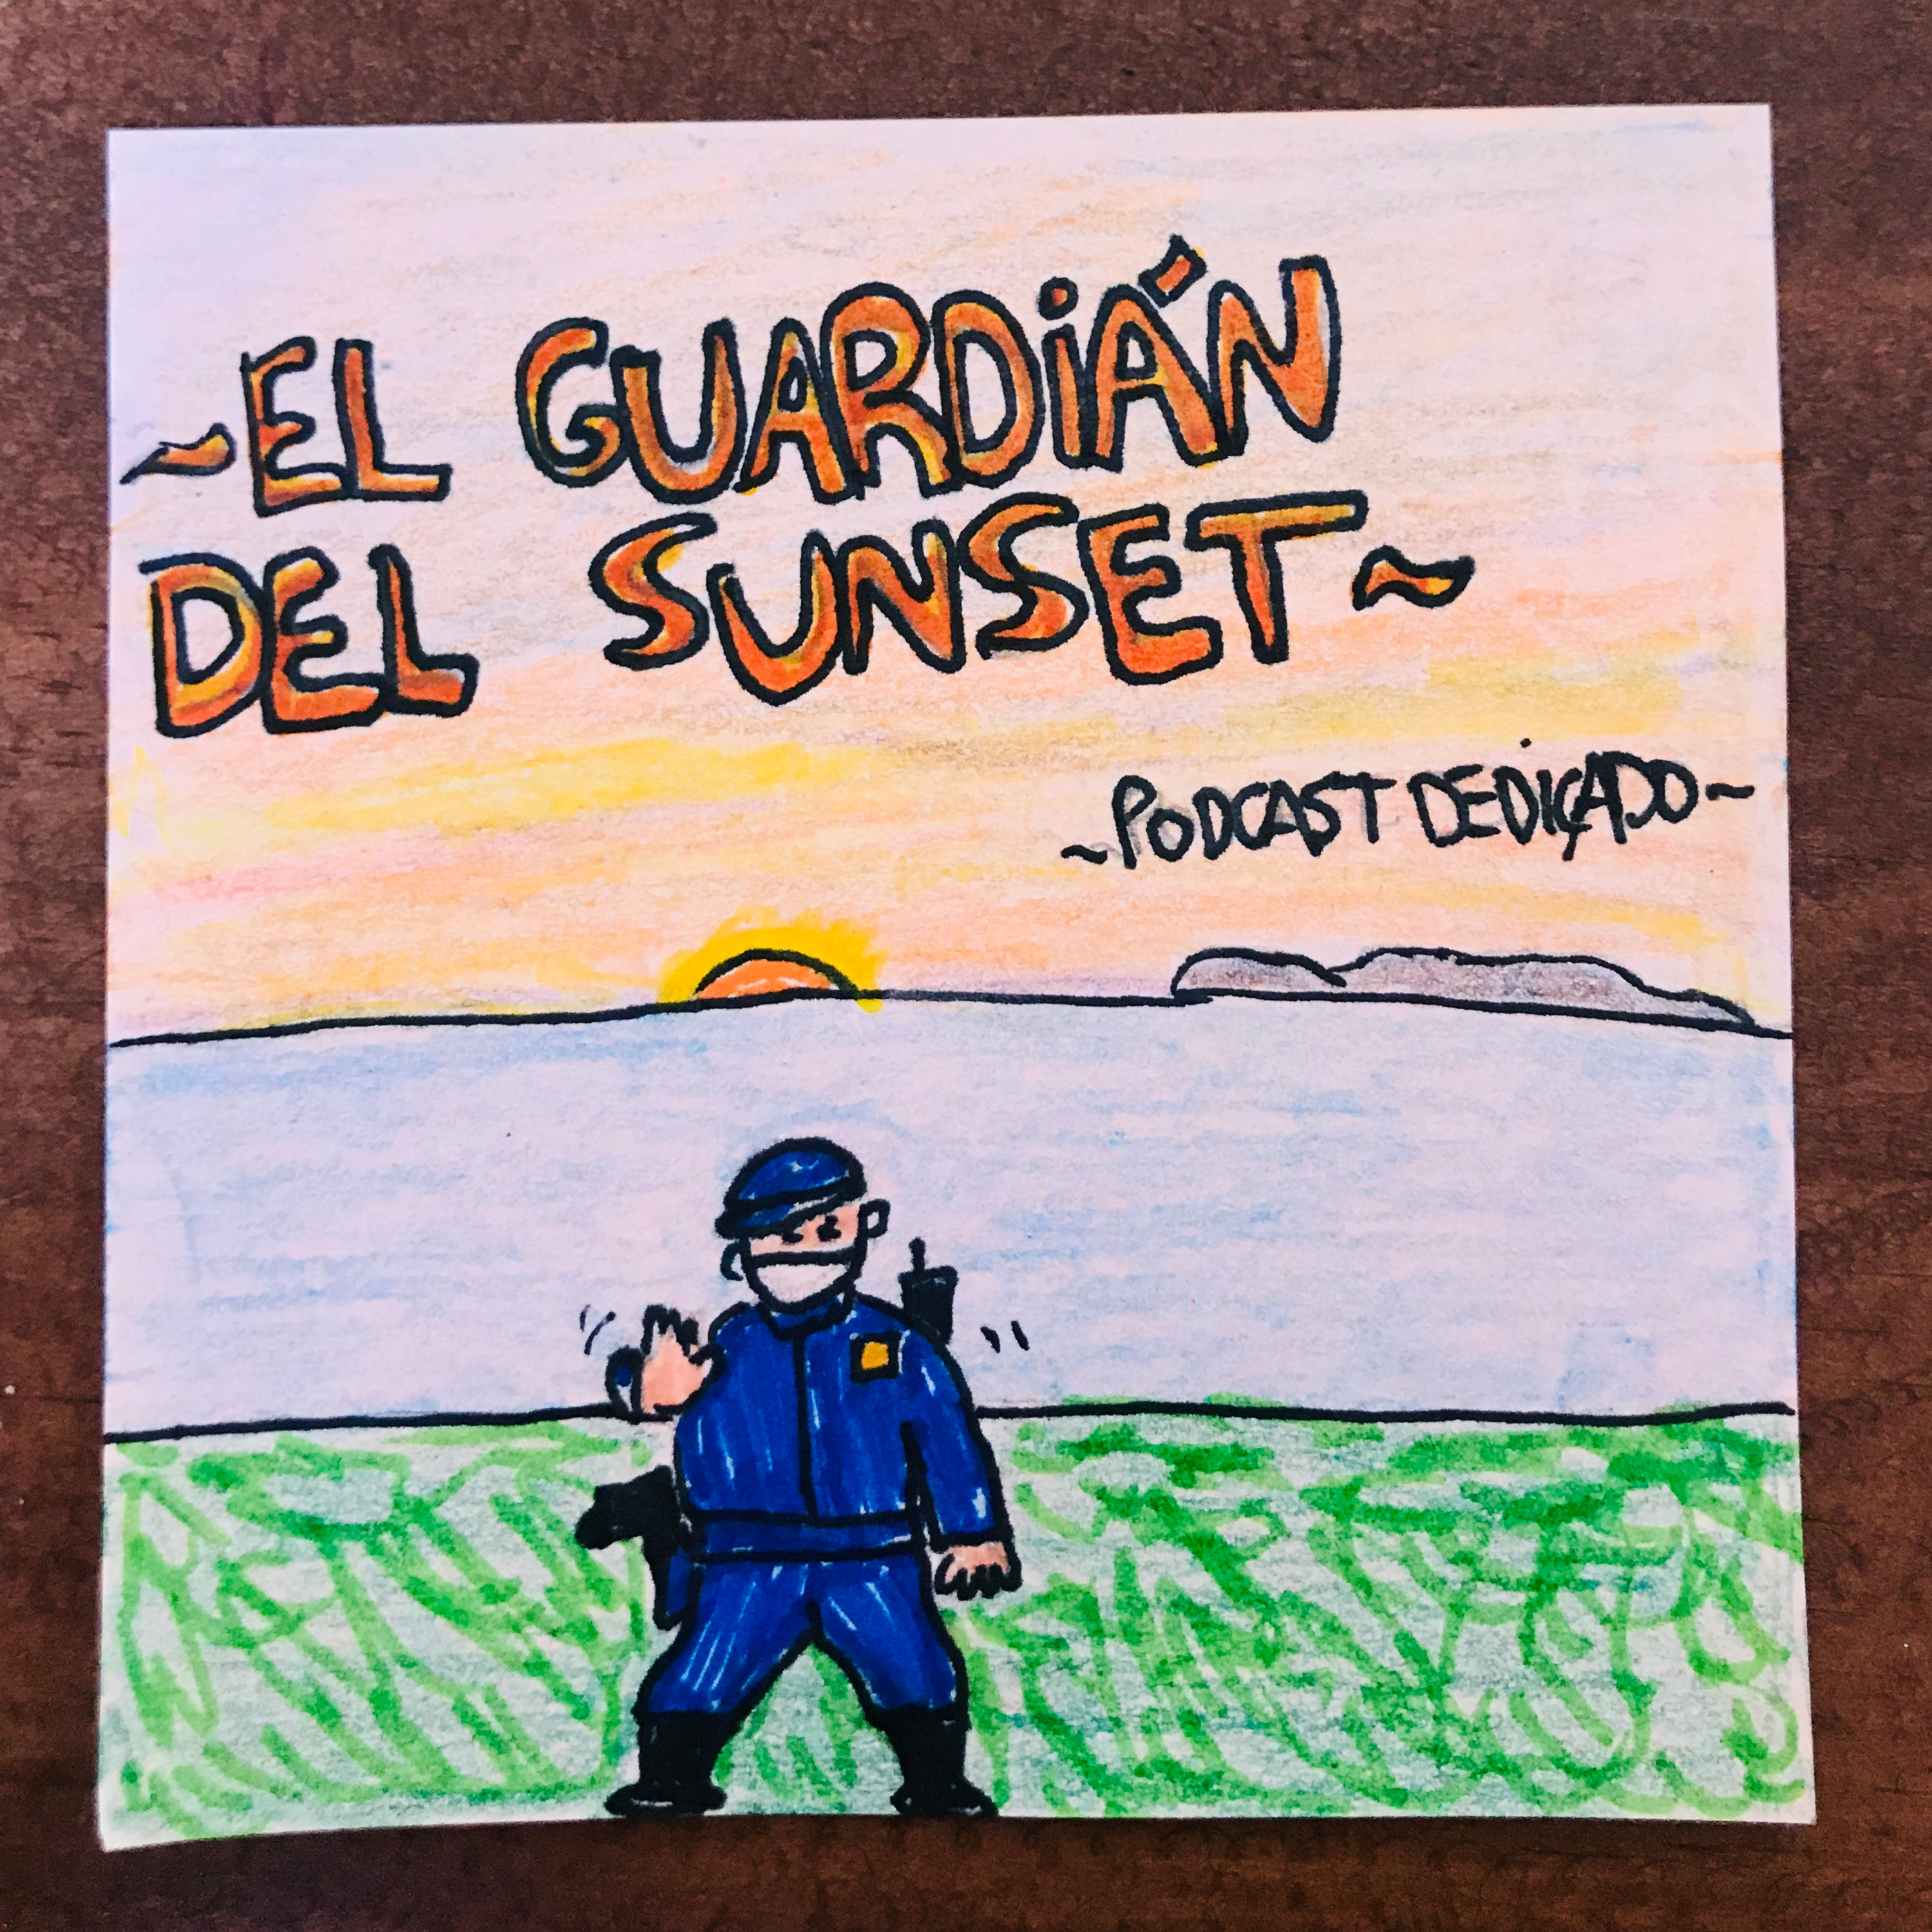 ~EL GUARDiÁN
DEL SUNSET~
~PODCAST DEDiCADO~